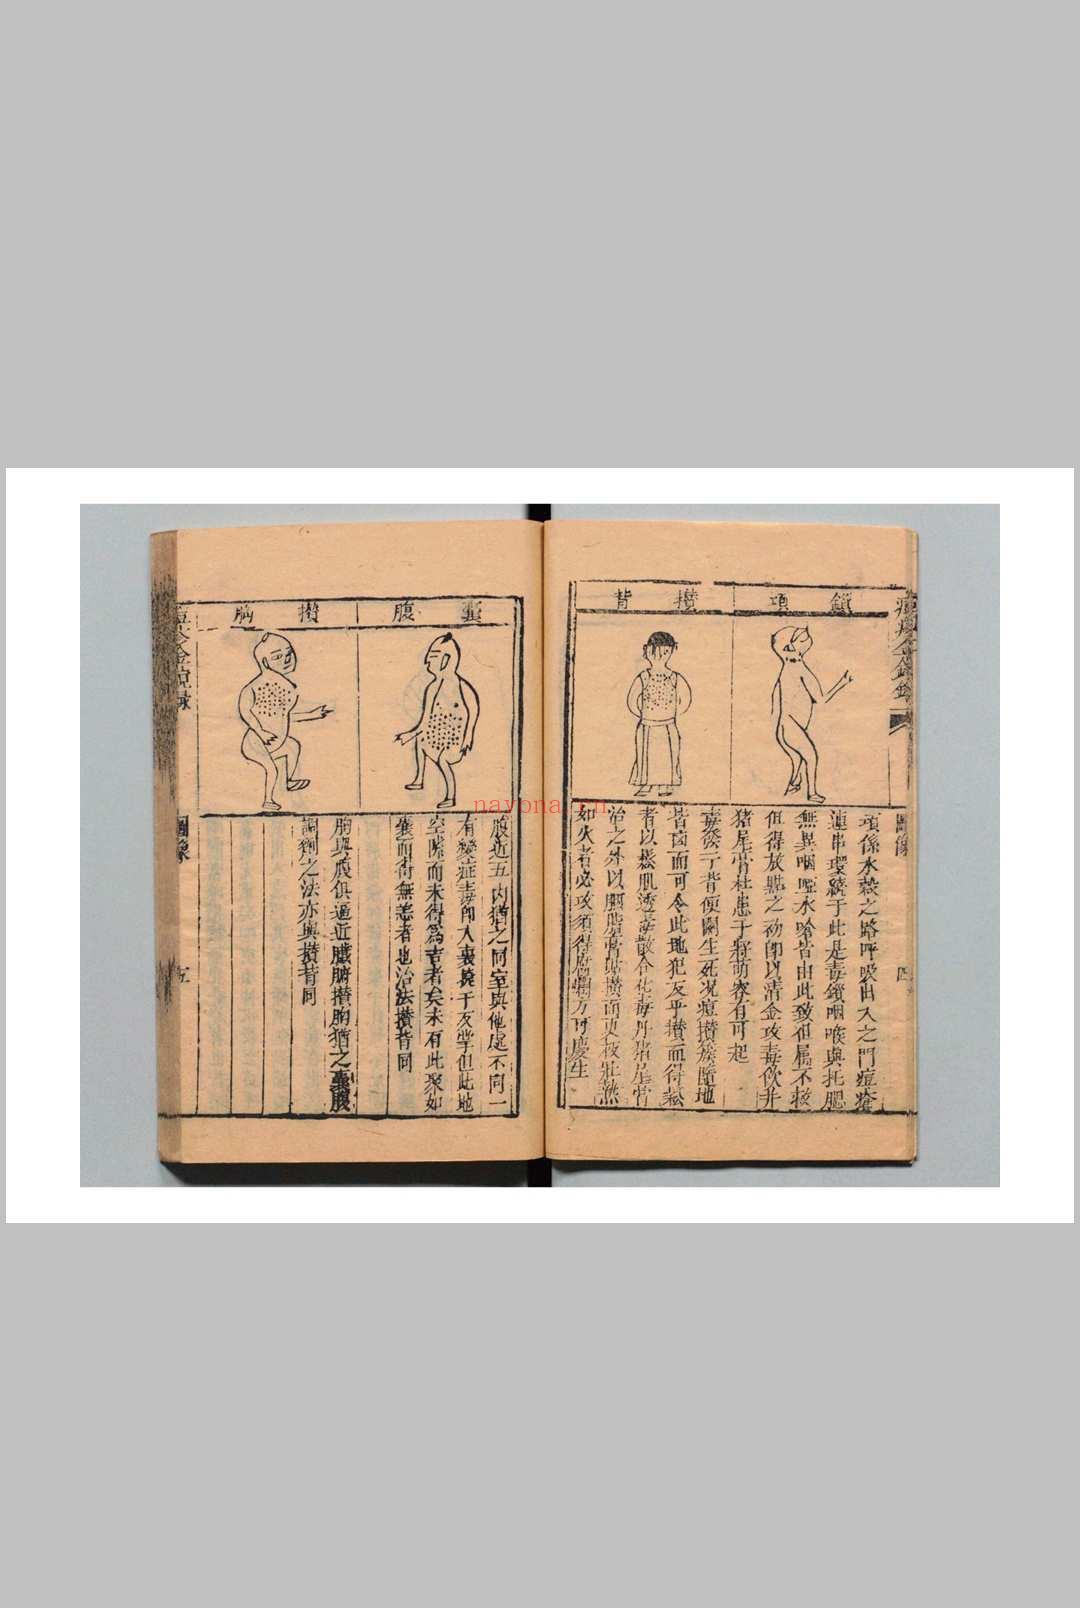 鎖項
攢背
項係水穀之路呼吸出入之門痘瘡
連串環繞于此是毒鎖咽喉與托腮
無異咽啞水嗆皆由此致但屬不救
但得放點之初即以清金攻毒飲并
猪尾膏杜患于將萌容有可起
毒發于背便關生死況痘攢簇隨地
皆凶而可令此地犯友乎攢而得鬆
者以鬆肌透毒散合化毒丹猪尾膏
治之外以胭脂膏貼攢而更板壯熱
如火者必攻須得腐爛方可慶生
圖像
四
囊腹
攢胸
腹近五內猶之同室與他處不同一
有變症毒即入裏莫于反掌但此地
空隙而未得為害者矣未有此聚如
囊而得無恙者也治法攢背同
胸與腹俱逼近臟腑攢胸猶之囊腹
調劑之法亦與攢背同
圖像
五
nayona.cn